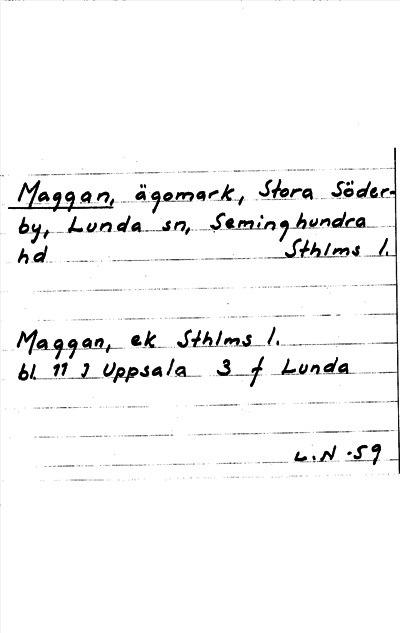 Maggan, ägomark, Stora Söder-
by, Lunda sn, Seminghundra
hd Sthlms l.
Maggan, ek Sthlms l.
bl. 11 J Uppsala 3 f Lunda
L.N -59